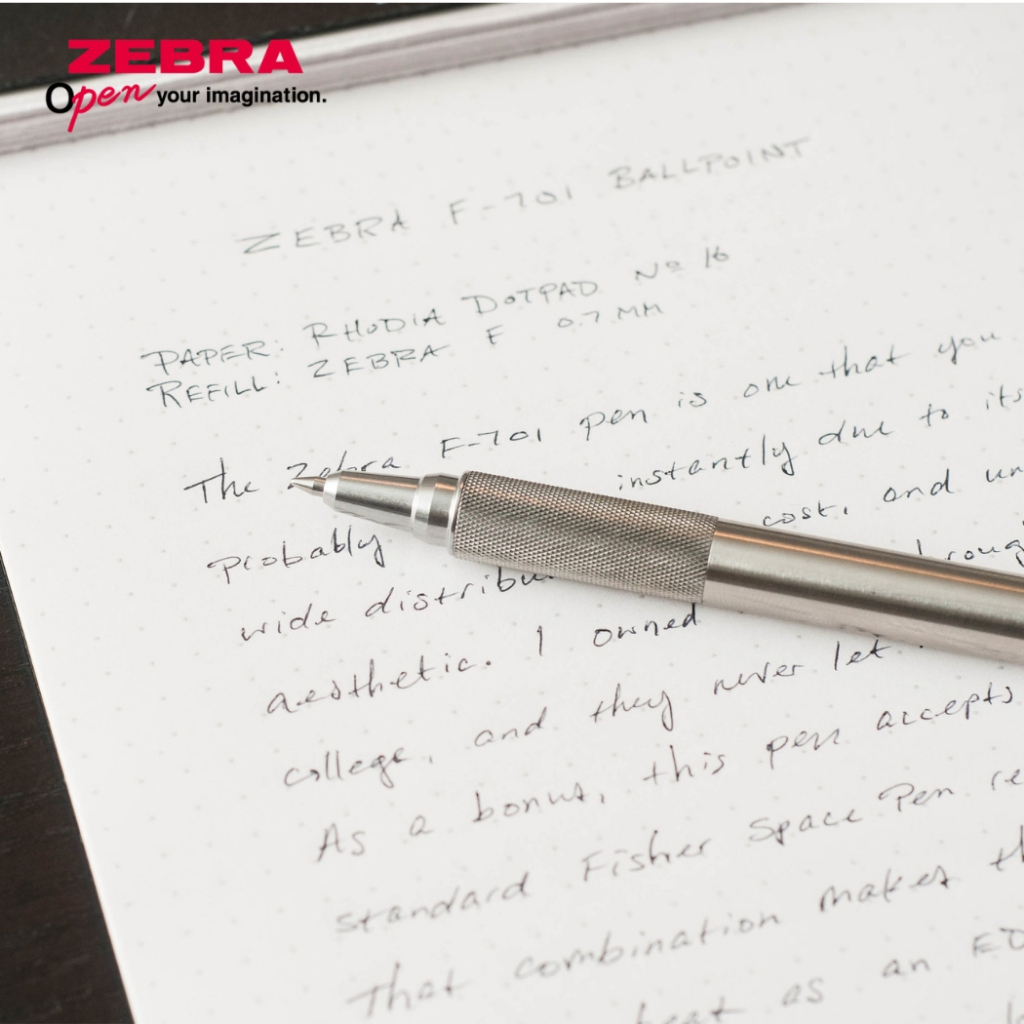 ZEBRA
Open your imagination.
ZEBRA F-701 BALLPOINT
PAPER: RHODIA DOTPAD Nº 16
REFILL: ZEBRA F 0.7 MM
The Zebra F-701 pen is one that you
probably instantly due to its
wide cost, and
aesthetic. I owned
college, and they never let
As a bonus, this pen accepts
standard Fisher Space Pen
That combination makes
as an